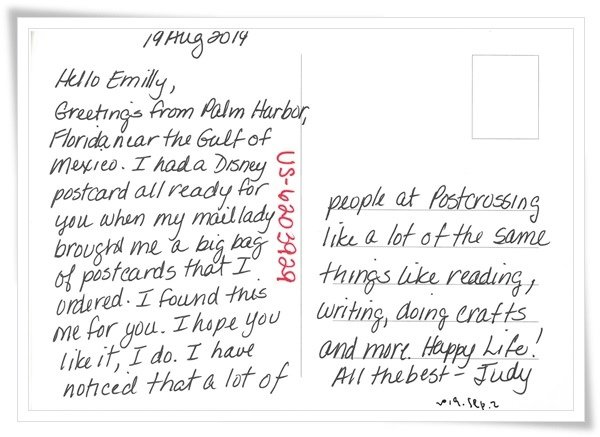 19 Aug 2019
Hello Emilly,
Greetings from Palm Harbor,
Florida near the Gulf of
Mexico. I had a Disney
postcard all ready for
you when my mail lady
brought me a big bag
of postcards that I
ordered. I found this
me for you. I hope you
like it, I do. I have
noticed that a lot of
US-6203929
people at Postcrossing
like a lot of the same
things like reading,
writing, doing crafts
and more. Happy Life!
All the best - Judy
2019. Sep. 2